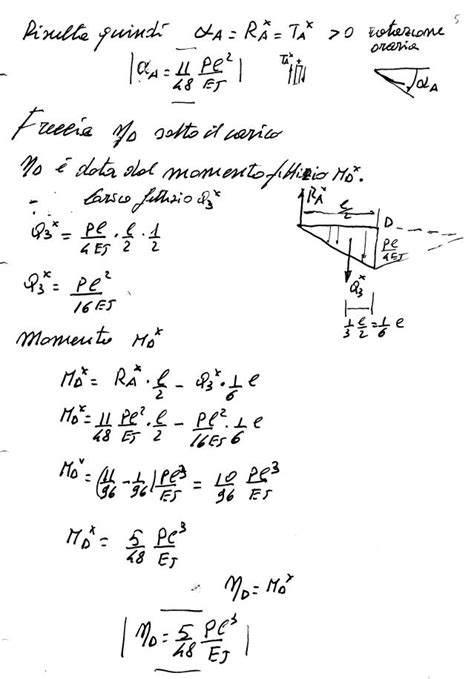 5
Risulta quindi α_A = R_A^* = T_A^* > 0 rotazione oraria
| α_A = 11/48 Pl²/EJ | T_A^* + α_A
Freccia η_D sotto il carico
η_D è data dal momento fittizio M_D^*.
- Carico fittizio Q_3^*
R_A^* l/2 D
Q_3^* = Pl/4EJ · l/2 · 1/2
Pl/4EJ
Q_3^*
Q_3^* = Pl²/16EJ
1/3 l/2 = 1/6 l
Momento M_D^*
M_D^* = R_A^* · l/2 - Q_3^* · 1/6 l
M_D^* = 11/48 Pl²/EJ · l/2 - Pl²/16EJ · 1/6 l
M_D^* = (11/96 - 1/96) Pl³/EJ = 10/96 Pl³/EJ
M_D^* = 5/48 Pl³/EJ
η_D = M_D^*
| η_D = 5/48 Pl³/EJ |